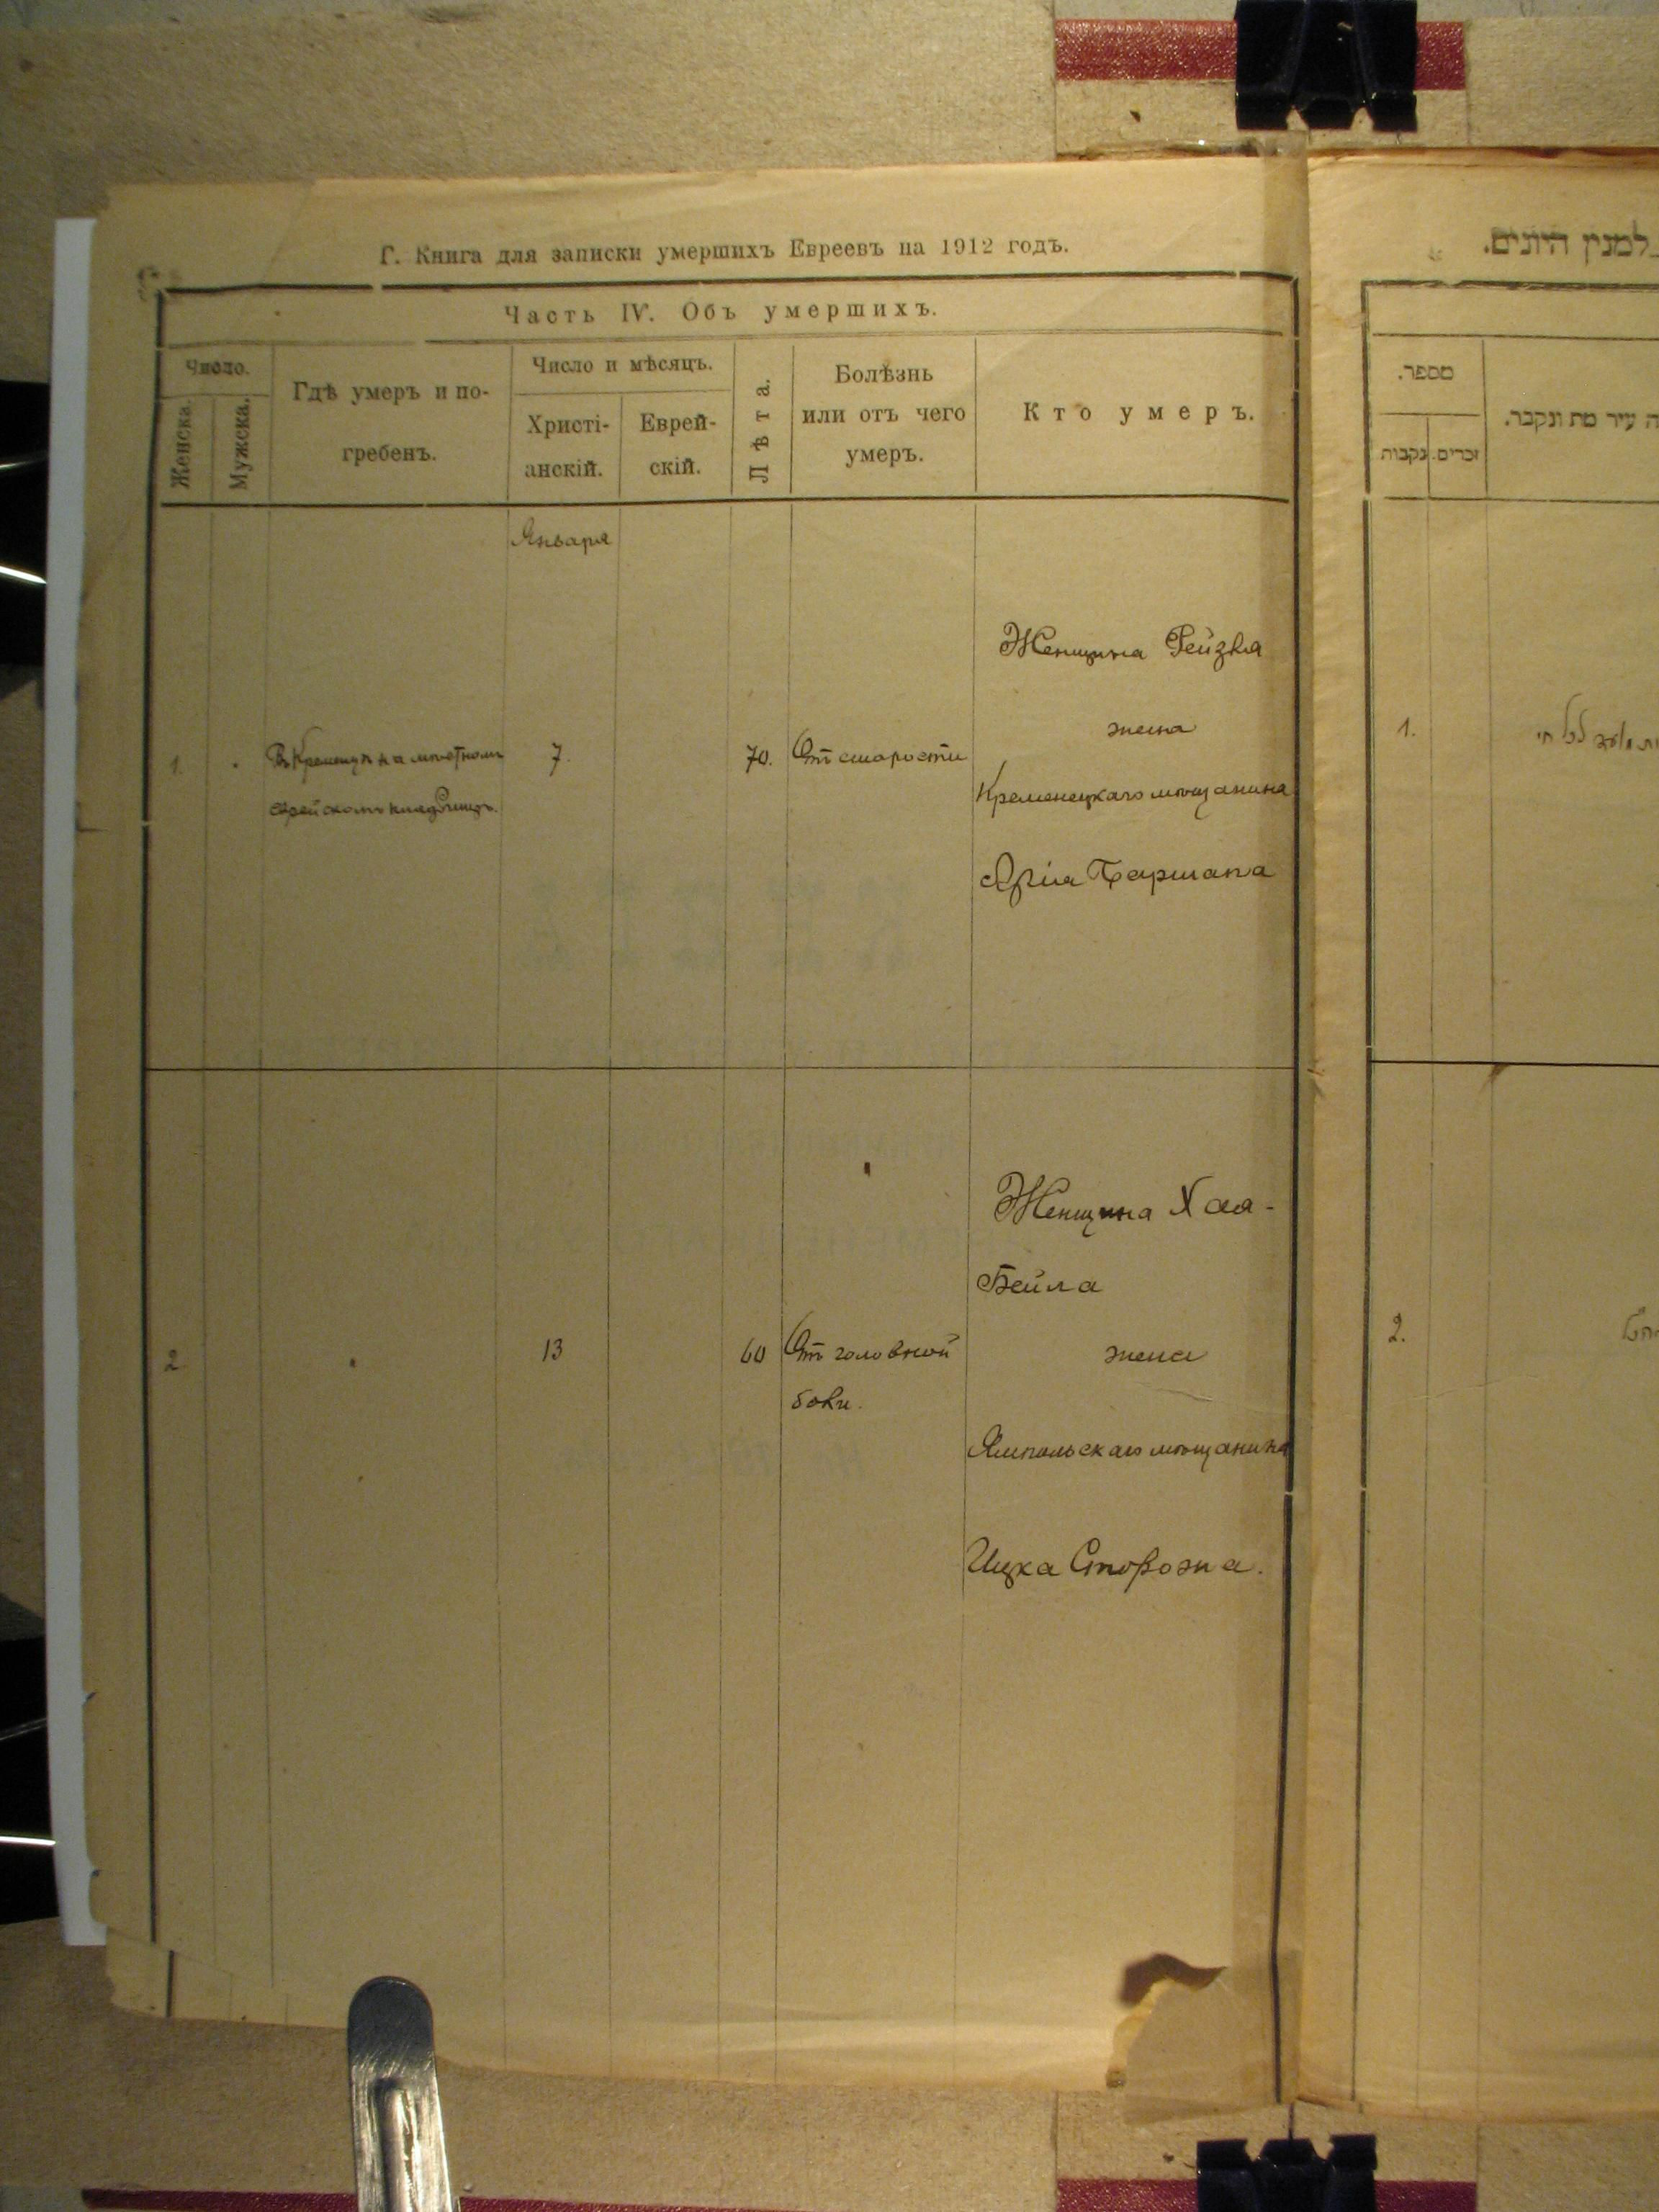 Г. Книга для записки умершихъ Евреевъ на 1912 годъ.
Часть IV. Объ умершихъ.
Число.
Женска.
Мужска.
Гдѣ умеръ и по-
гребенъ.
Число и мѣсяцъ.
Христі-
анскій.
Еврей-
скій.
Лѣта.
Болѣзнь
или отъ чего
умеръ.
Кто умеръ.
Января
1.
Въ Кременцѣ на мѣстномъ
еврейскомъ кладбищѣ.
7.
70.
Отъ старости
Женщина Рейзя
жена
Кременецкаго мѣщанина
Арія Бармака
2
13
60
Отъ головной
боли.
Женщина Хая-
Бейла
жена
Ямпольскаго мѣщанина
Ицка Сторожа.
למנין היונים.
מספר.
נקבות
זכרים.
עיר מת ונקבר.
1.
2.